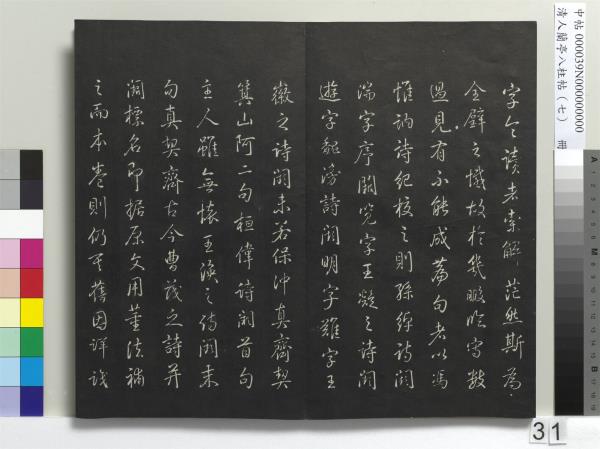 字令讀者索解茫然斯為
全璧之憾故於幾暇臨寫數
過見有不能成句者以馮
惟訥詩紀校之則孫綽詩闕
湍字序闕覽字王凝之詩闕
遊字魏滂詩闕明字羅字王
徽之詩闕未若保沖真齊契
箕山阿二句桓偉詩闕首句
主人雖無懷王渙之詩闕末
句真契齊古今曹茂之詩并
闕標名即據原文用董法補
之而本卷則仍其舊因詳識
中帖 000039N000000000
清人蘭亭八柱帖(七) 冊
31